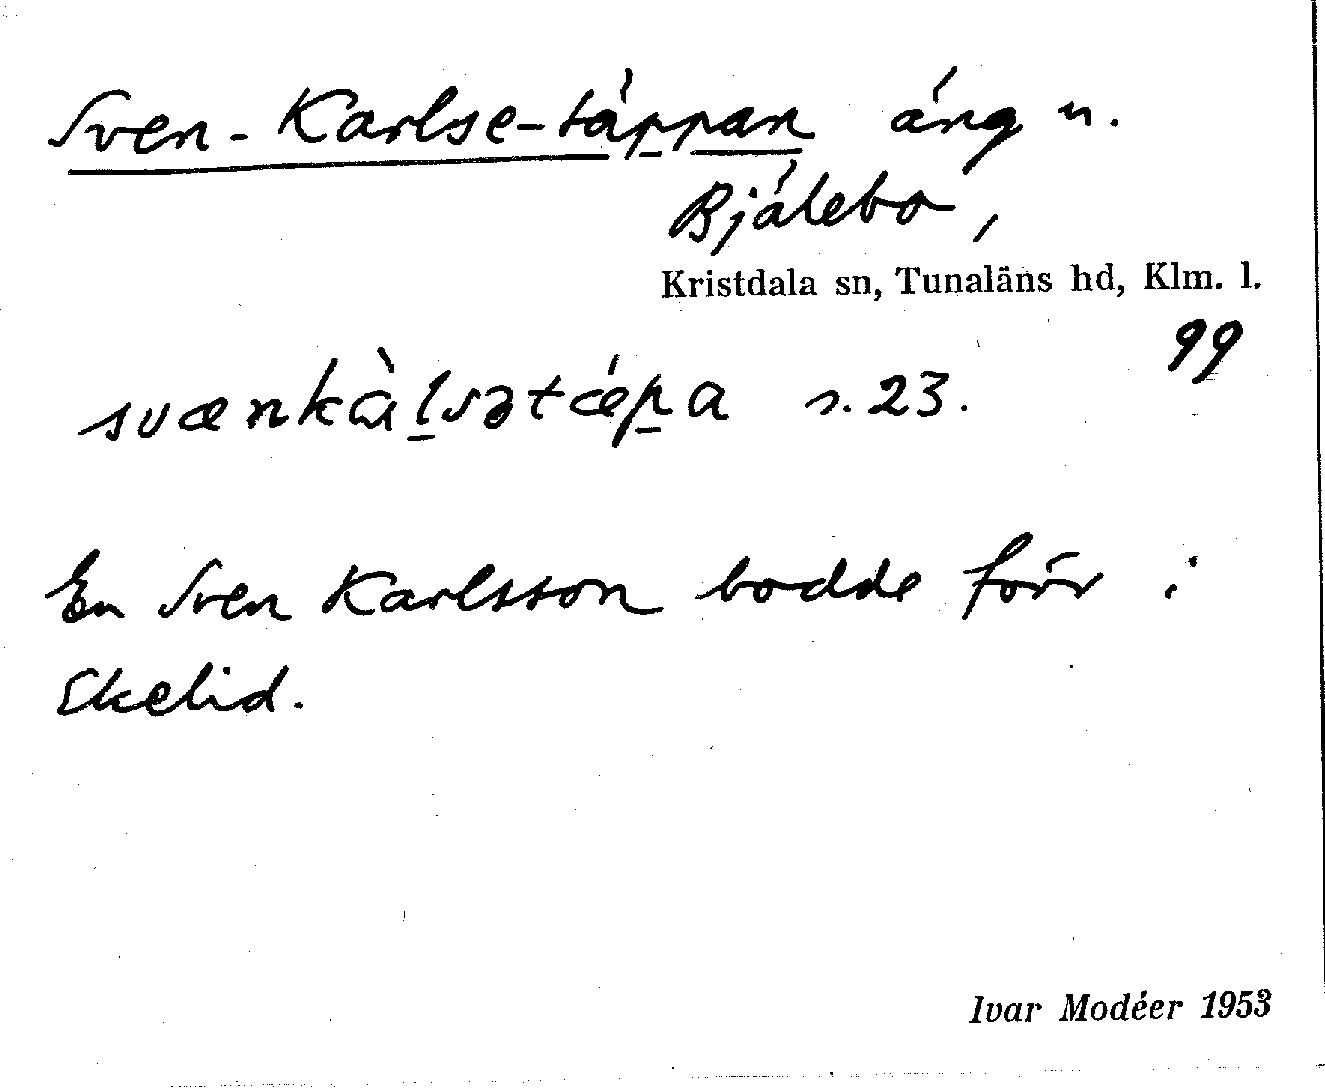 Sven-Karlse-täppan äng u.
Bjälebo,
Kristdala sn, Tunaläns hd, Klm. l.
99
svænkàl̠sətǽp̠a s. 23.
En Sven Karlsson bodde förr i
Ekelid.
Ivar Modéer 1953